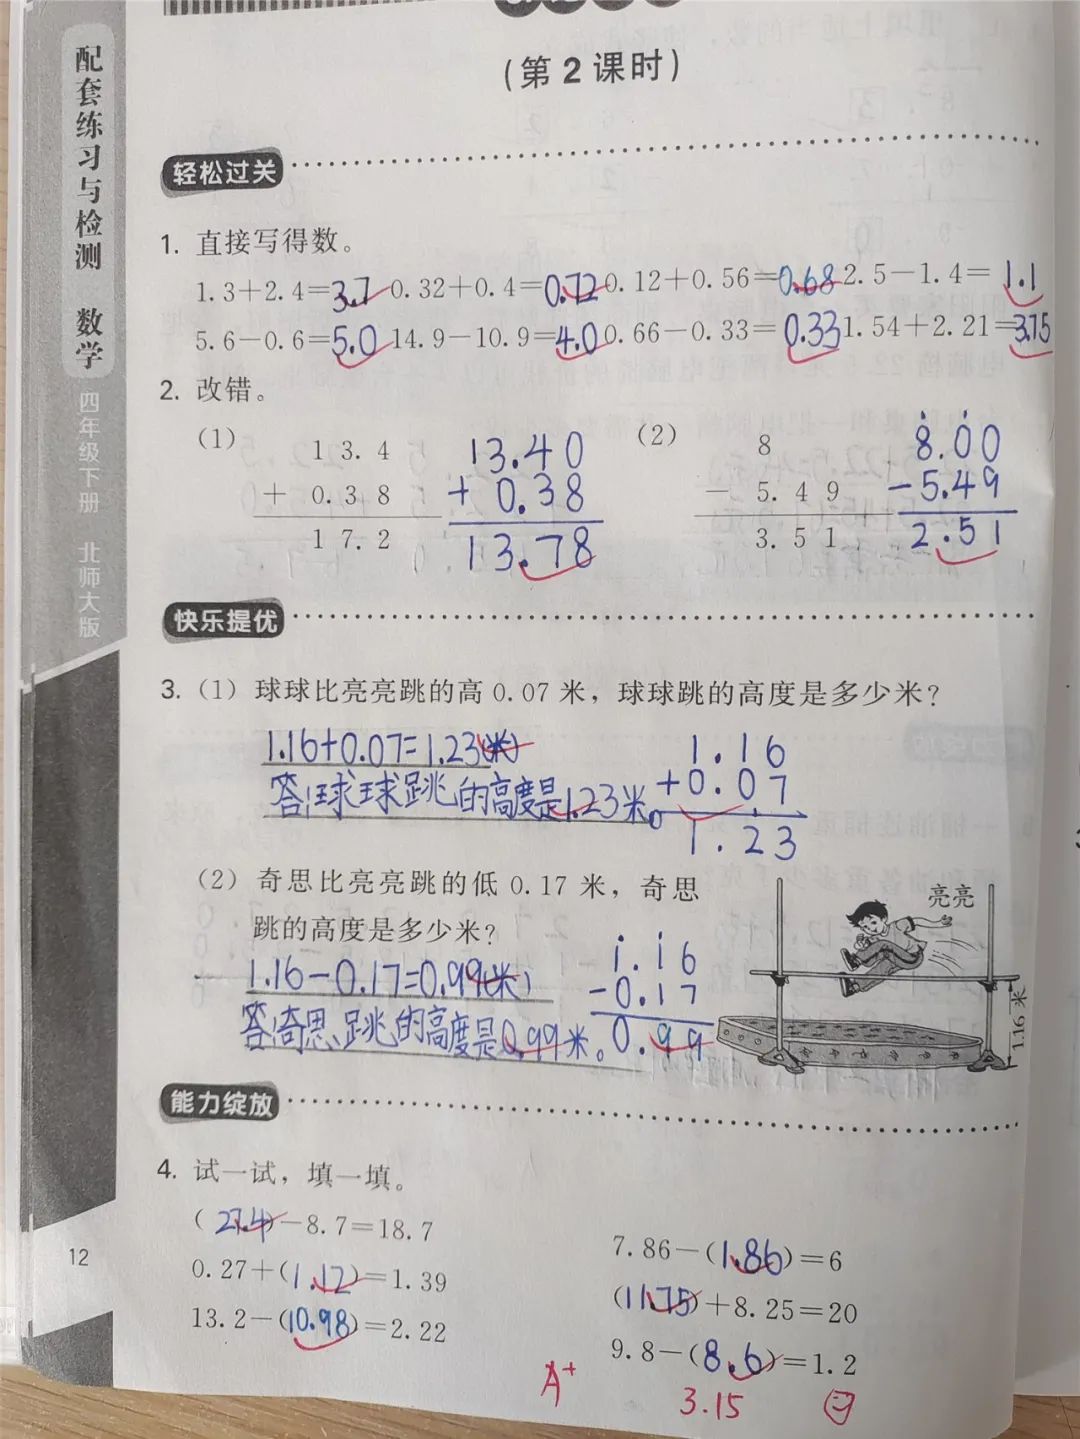 配套练习与检测 数学 四年级下册 北师大版
(第2课时)
轻松过关
1. 直接写得数。
1.3+2.4=3.7 0.32+0.4=0.72 0.12+0.56=0.68 2.5-1.4=1.1
5.6-0.6=5.0 14.9-10.9=4.0 0.66-0.33=0.33 1.54+2.21=3.75
2. 改错。
(1)
13.4
+ 0.38
17.2
13.40
+ 0.38
13.78
(2)
8
- 5.49
3.51
8.00
-5.49
2.51
快乐提优
3. (1) 球球比亮亮跳的高0.07米，球球跳的高度是多少米？
1.16+0.07=1.23(米)
答:球球跳的高度是1.23米。
1.16
+0.07
1.23
(2) 奇思比亮亮跳的低0.17米，奇思
跳的高度是多少米？
1.16-0.17=0.99(米)
答:奇思跳的高度是0.99米。
1.16
-0.17
0.99
亮亮
1.16米
能力绽放
4. 试一试，填一填。
(27.4)-8.7=18.7
0.27+(1.12)=1.39
13.2-(10.98)=2.22
7.86-(1.86)=6
(11.75)+8.25=20
9.8-(8.6)=1.2
A+
3.15
12